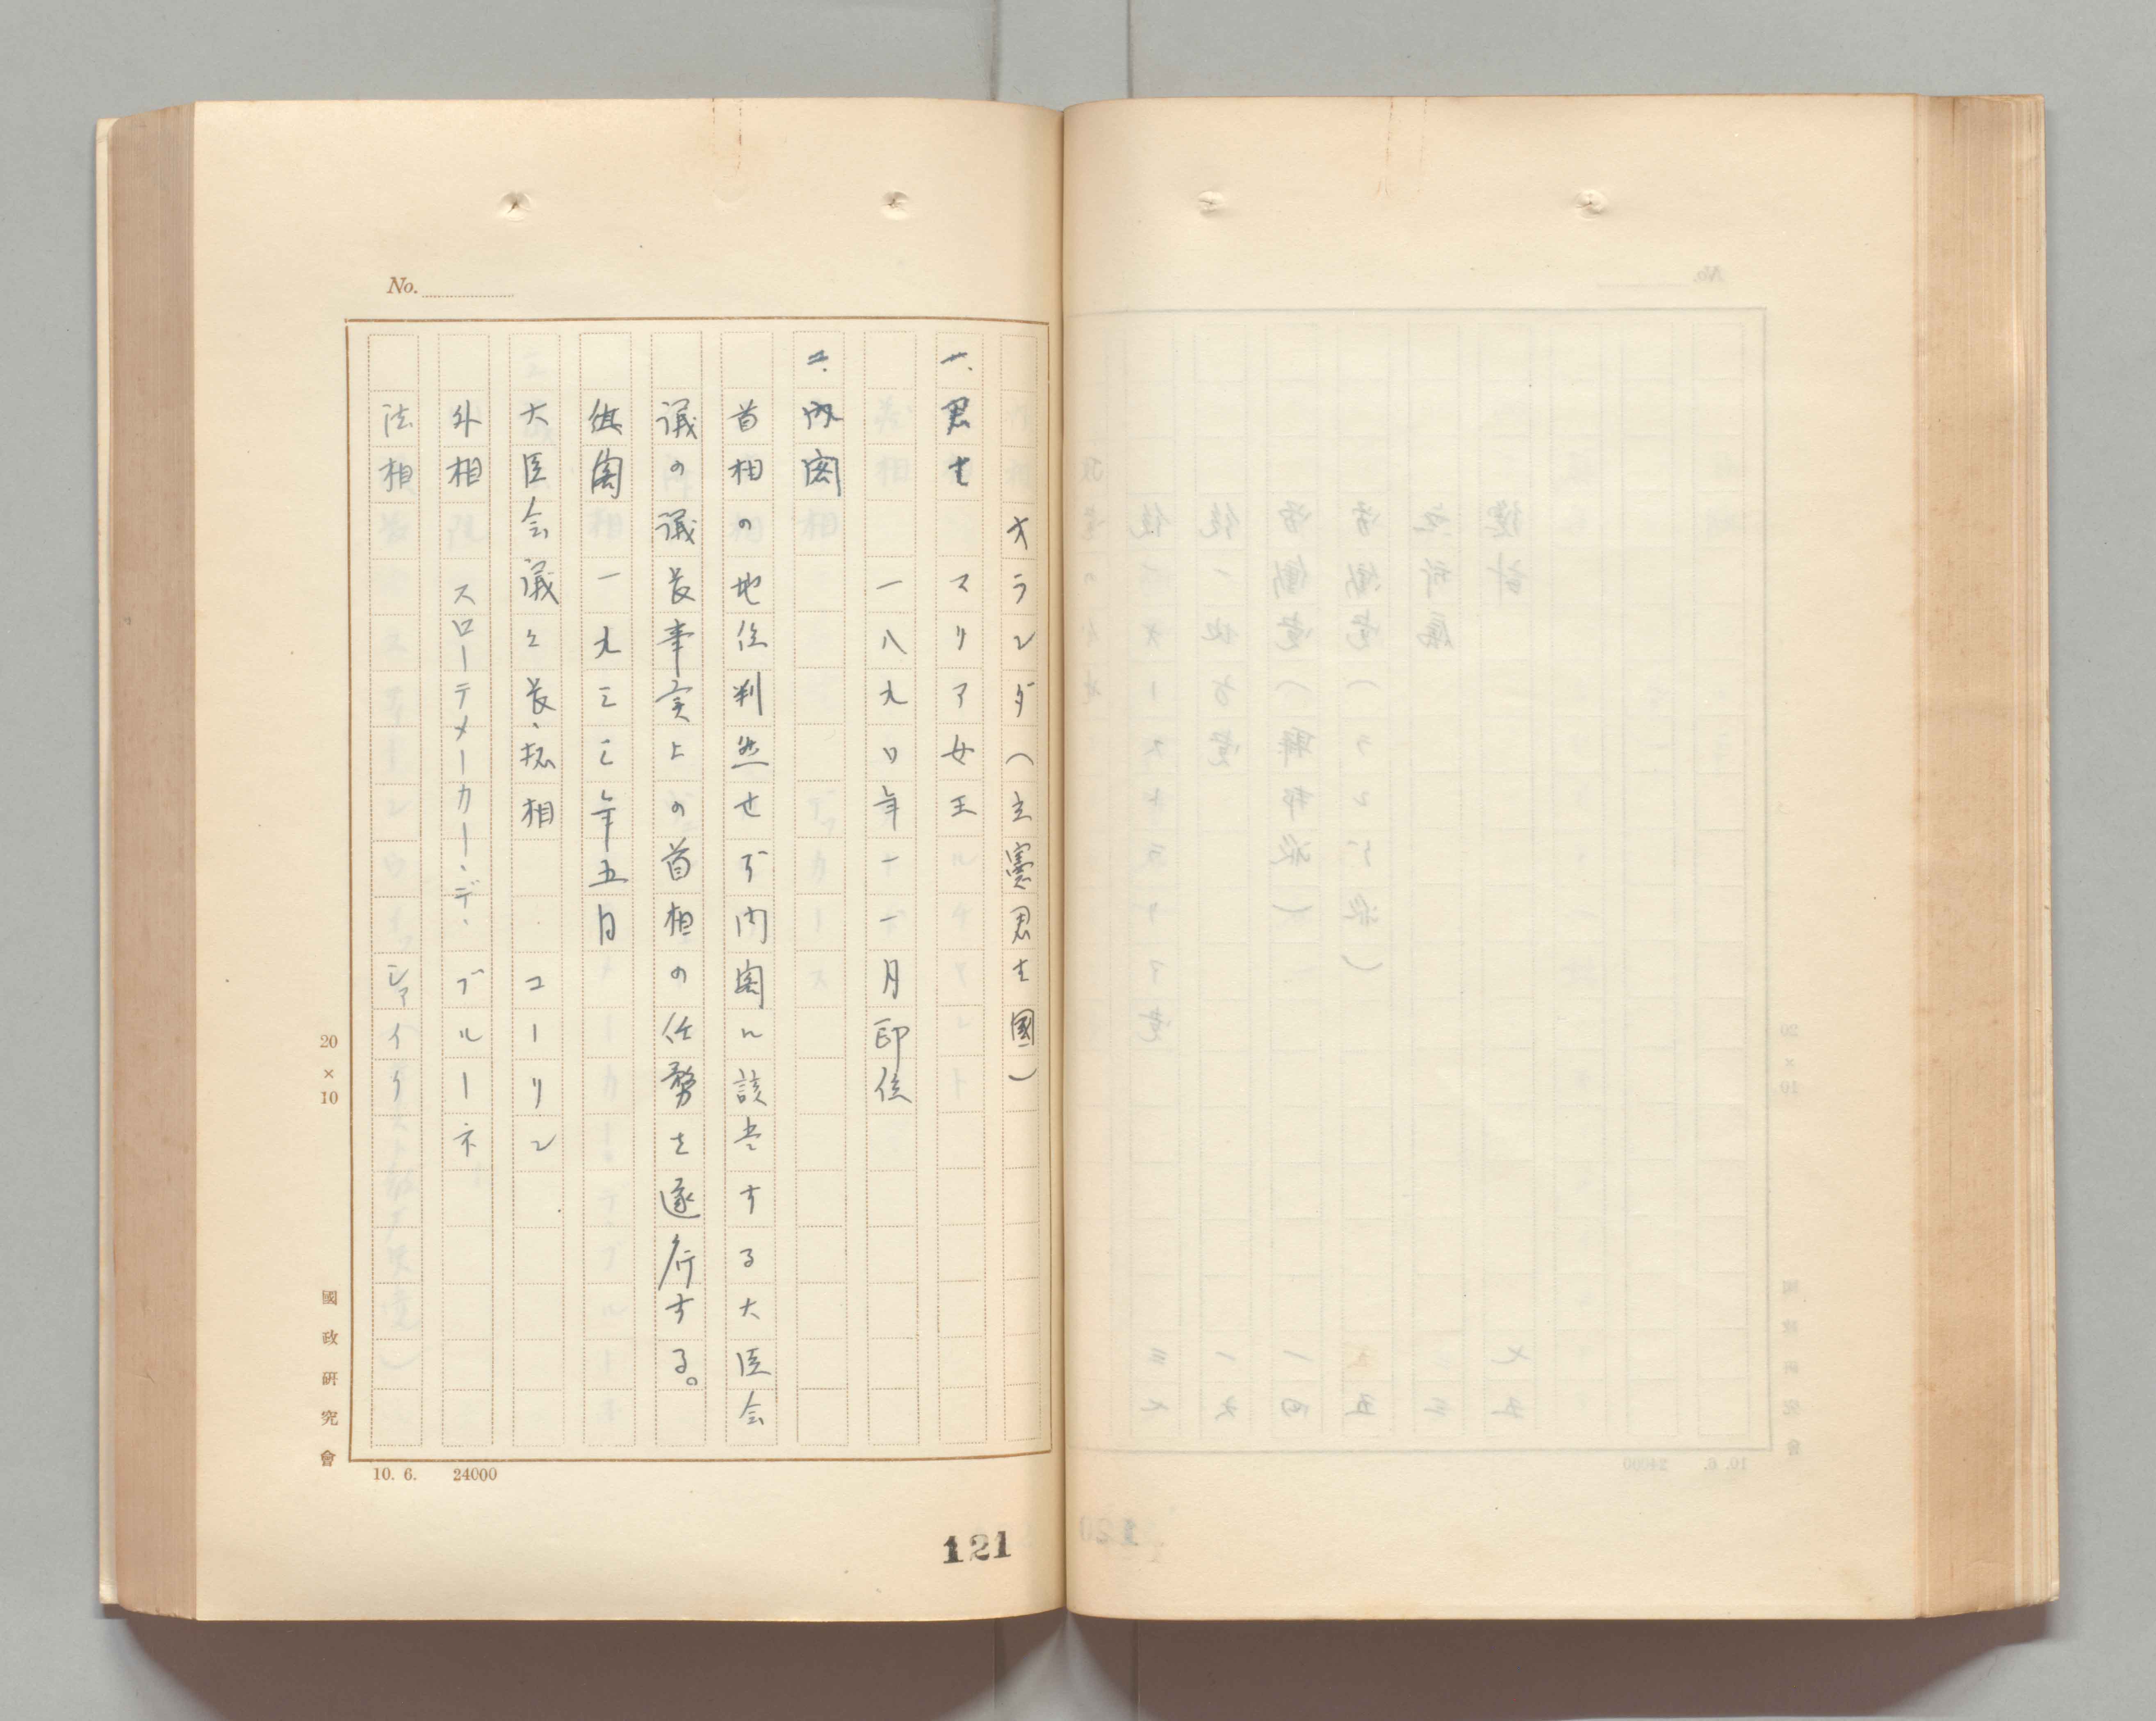 No.
オランダ(立憲君主國)
一、君主 マリア女王
一八九〇年一一月即位
二、内閣
首相の地位判然せず内閣に該当する大臣会
議の議長事実上の首相の任務を遂行する。
組閣 一九三三年五月
大臣会議々長、拓相 コーリン
外相 スローテメーカー・デ・ブルーネ
法相 シァイク
20×10
國政研究會
10. 6. 24000
121